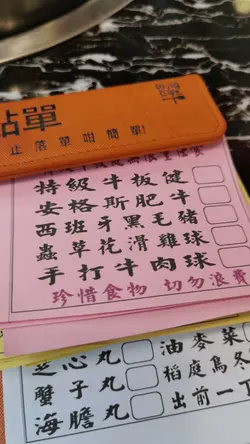 點單
止落單咁簡單!
特級牛板健
安格斯肥牛
西班牙黑毛豬
蟲草花滑雞球
手打牛肉球
珍惜食物 切勿浪費
芝心丸
蟹子丸
海膽丸
油麥菜
稻庭烏冬
出前一丁